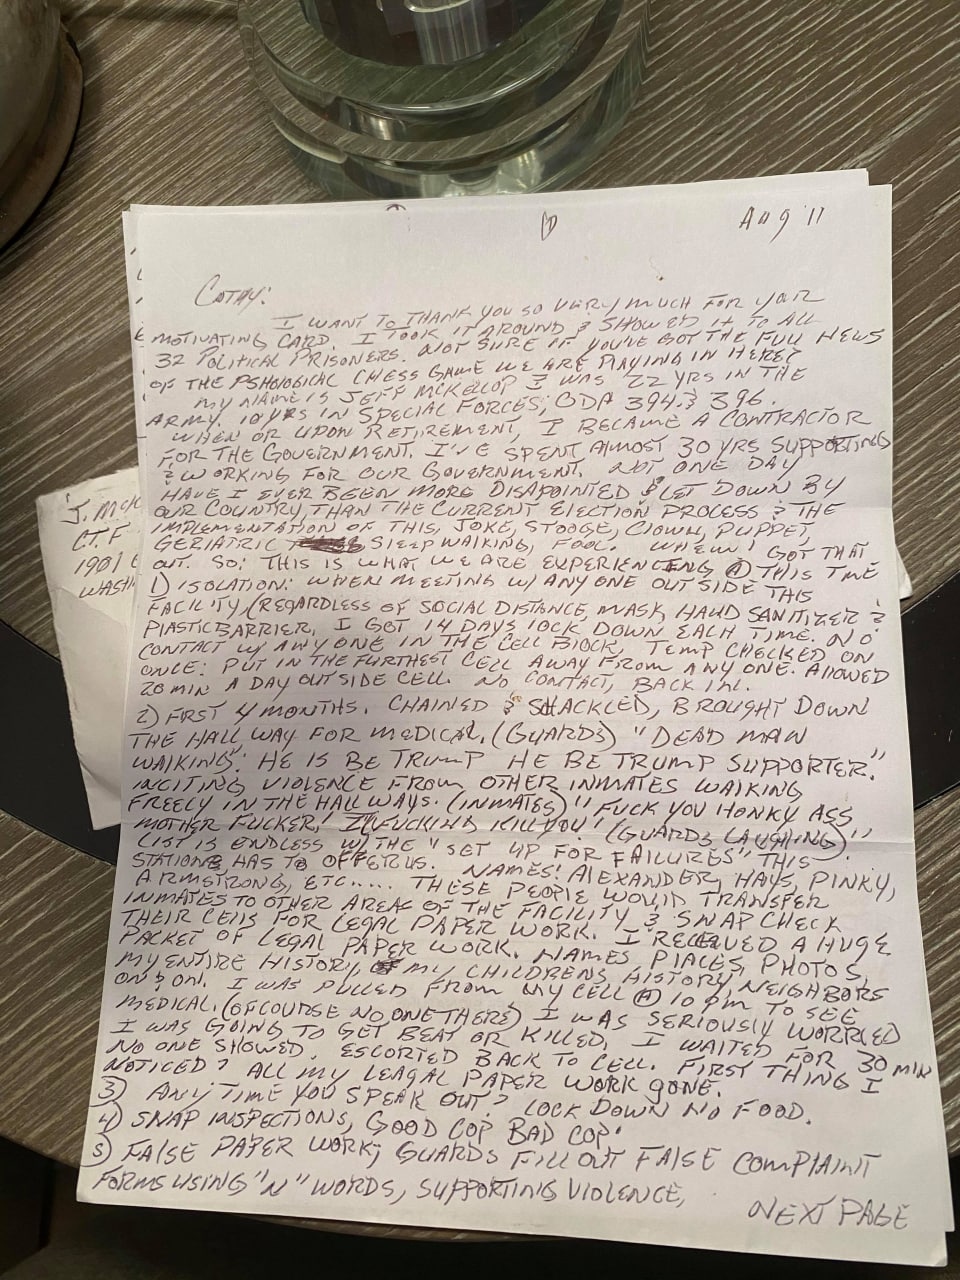 Aug 11
CATHY:
I WANT TO THANK YOU SO VERY MUCH FOR YOUR
MOTIVATING CARD. I TOOK IT AROUND & SHOWED IT TO ALL
32 POLITICAL PRISONERS. NOT SURE IF YOU'VE GOT THE FULL NEWS
OF THE PSHOLOGICAL CHESS GAME WE ARE PLAYING IN HERE?
MY NAME IS JEFF MCKELLOP I WAS 22 YRS IN THE
ARMY. 10 YRS IN SPECIAL FORCES; ODA 394 & 396.
WHEN OR UPON RETIREMENT, I BECAME A CONTRACTOR
FOR THE GOVERNMENT. I'VE SPENT ALMOST 30 YRS SUPPORTING
& WORKING FOR OUR GOVERNMENT. NOT ONE DAY
HAVE I EVER BEEN MORE DISAPOINTED & LET DOWN BY
OUR COUNTRY, THAN THE CURRENT ELECTION PROCESS & THE
IMPLEMENTATION OF THIS, JOKE, STOOGE, CLOWN, PUPPET,
GERIATRIC SLEEP WALKING, FOOL. WHEW! GOT THAT
OUT. SO: THIS IS WHAT WE ARE EXPERIENCING @ THIS TIME
1) ISOLATION: WHEN MEETING W/ ANY ONE OUT SIDE THIS
FACILITY, (REGARDLESS OF SOCIAL DISTANCE, MASK, HAND SANITIZER &
PLASTIC BARRIER, I GOT 14 DAYS LOCK DOWN EACH TIME. NO
CONTACT W/ ANY ONE IN THE CELL BLOCK, TEMP CHECKED ON
ONCE: PUT IN THE FURTHEST CELL AWAY FROM ANY ONE. ALLOWED
20 MIN A DAY OUTSIDE CELL. NO CONTACT, BACK IN.
2) FIRST 4 MONTHS. CHAINED & SHACKLED, BROUGHT DOWN
THE HALL WAY FOR MEDICAL. (GUARDS) "DEAD MAN
WALKING: HE IS BE TRUMP HE BE TRUMP SUPPORTER."
INCITING VIOLENCE FROM OTHER INMATES WALKING
FREELY IN THE HALLWAYS. (INMATES) "FUCK YOU HONKY ASS
MOTHER FUCKER, I'LL FUCKING KILL YOU" (GUARDS LAUGHING)."
LIST IS ENDLESS W/ THE "SET UP FOR FAILURES" THIS
STATIONS HAS TO OFFER US. NAMES! ALEXANDER, HAYS, PINKY,
ARMSTRONG, ETC..... THESE PEOPLE WOULD TRANSFER
INMATES TO OTHER AREAS OF THE FACILITY & SNAP CHECK
THEIR CELLS FOR LEGAL PAPER WORK. I RECEIVED A HUGE
PACKET OF LEGAL PAPER WORK. NAMES PLACES, PHOTOS,
MY ENTIRE HISTORY, MY CHILDRENS, HISTORY, NEIGHBORS
ON & ON. I WAS PULLED FROM MY CELL @ 10 PM TO SEE
MEDICAL. (OF COURSE NO ONE THERE) I WAS SERIOUSLY WORRIED
I WAS GOING TO GET BEAT OR KILLED, I WAITED FOR 30 MIN
NO ONE SHOWED. ESCORTED BACK TO CELL. FIRST THING I
NOTICED? ALL MY LEAGAL PAPER WORK GONE.
3) ANY TIME YOU SPEAK OUT? LOCK DOWN NO FOOD.
4) SNAP INSPECTIONS, GOOD COP BAD COP.
5) FALSE PAPER WORK; GUARDS FILL OUT FALSE COMPLAINT
FORMS USING "N" WORDS, SUPPORTING VIOLENCE,
NEXT PAGE
J. MCK
C.T.F
1901 E
WASH